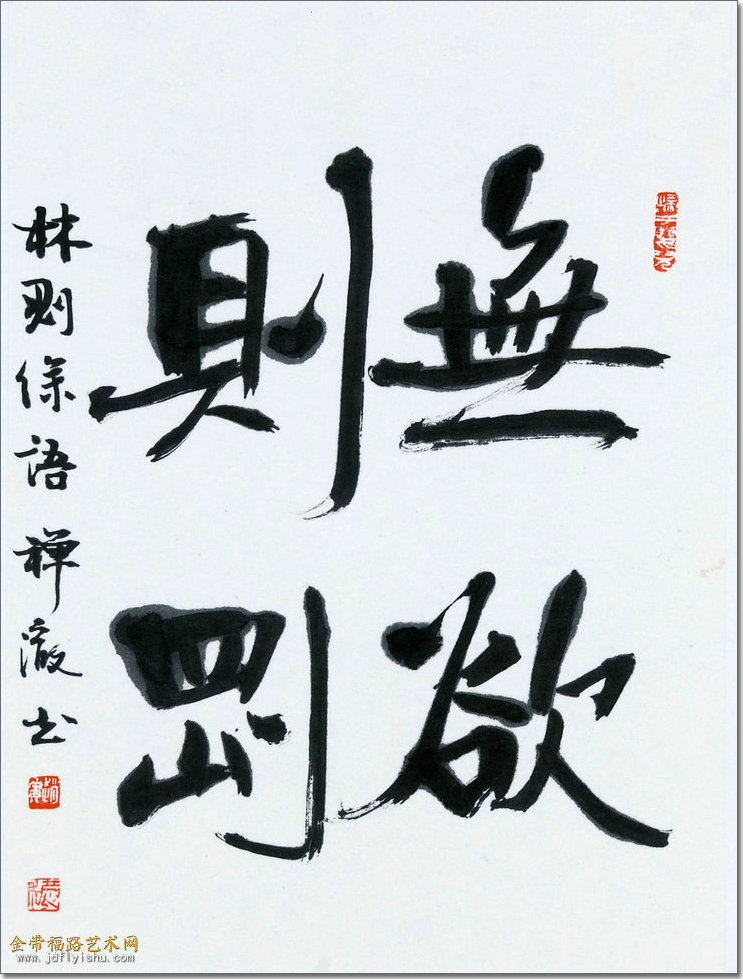 無欲
則剛
林则徐語 禅澈书
金带福路艺术网
www.jdflyishu.com